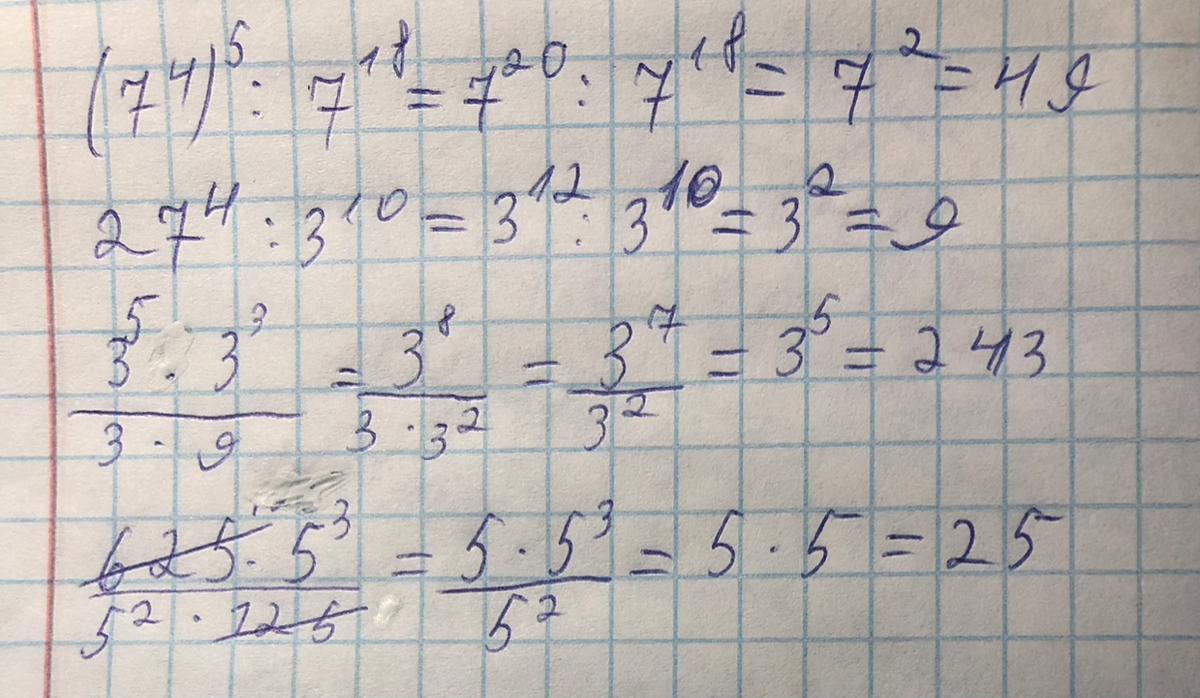 (7⁴)⁵ : 7¹⁸ = 7²⁰ : 7¹⁸ = 7² = 49
27⁴ : 3¹⁰ = 3¹² : 3¹⁰ = 3² = 9
3⁵ · 3³ / 3 · 9 = 3⁸ / 3 · 3² = 3⁷ / 3² = 3⁵ = 243
625 · 5³ / 5² · 125 = 5 · 5³ / 5² = 5 · 5 = 25